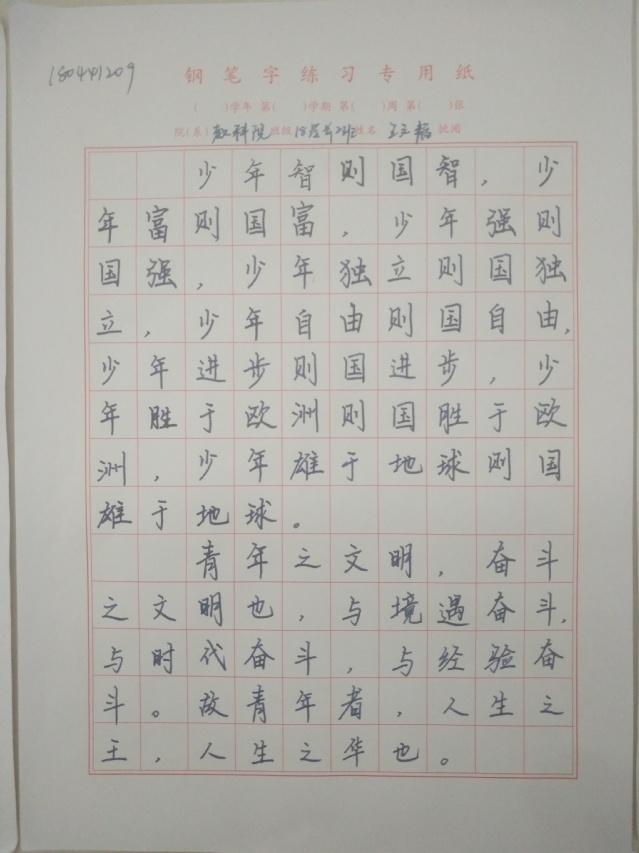 180441209
钢笔字练习专用纸
( )学年 第( )学期 第( )周 第( )张
院(系)教科院 班级 姓名 批阅
少年智则国智,少
年富则国富,少年强则
国强,少年独立则国独
立,少年自由则国自由,
少年进步则国进步,少
年胜于欧洲则国胜于欧
洲,少年雄于地球则国
雄于地球。
青年之文明,奋斗
之文明也,与境遇奋斗,
与时代奋斗,与经验奋
斗。故青年者,人生之
王,人生之华也。